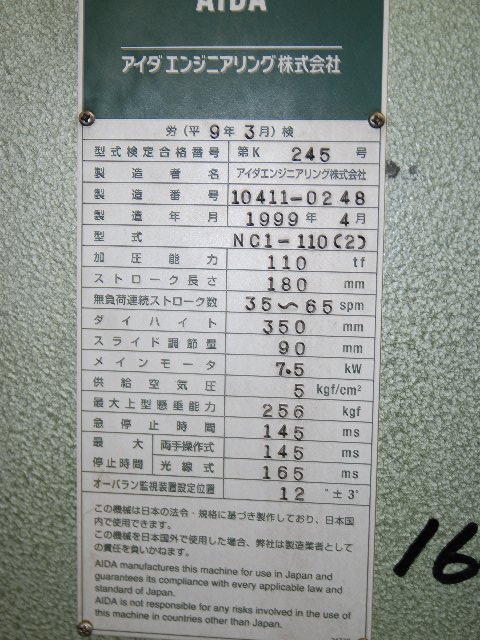 AIDA
アイダエンジニアリング株式会社
労(平 9年 3月)検
型式検定合格番号 第K 245 号
製造者名 アイダエンジニアリング株式会社
製造番号 10411-0248
製造年月 1999年 4月
型式 NC1-110(2)
加圧能力 110 tf
ストローク長さ 180 mm
無負荷連続ストローク数 35〜65 spm
ダイハイト 350 mm
スライド調節量 90 mm
メインモータ 7.5 kW
供給空気圧 5 kgf/cm²
最大上型懸垂能力 256 kgf
急停止時間 145 ms
最大停止時間 両手操作式 145 ms
光線式 165 ms
オーバラン監視装置設定位置 12 °±3°
この機械は日本の法令・規格に基づき製作しており、日本国
内で使用できます。
この機械を日本国外で使用した場合、弊社は製造業者として
の責任を負いかねます。
AIDA manufactures this machine for use in Japan and
guarantees its compliance with every applicable law and
standard of Japan.
AIDA is not responsible for any risks involved in the use of
this machine in countries other than Japan.
16